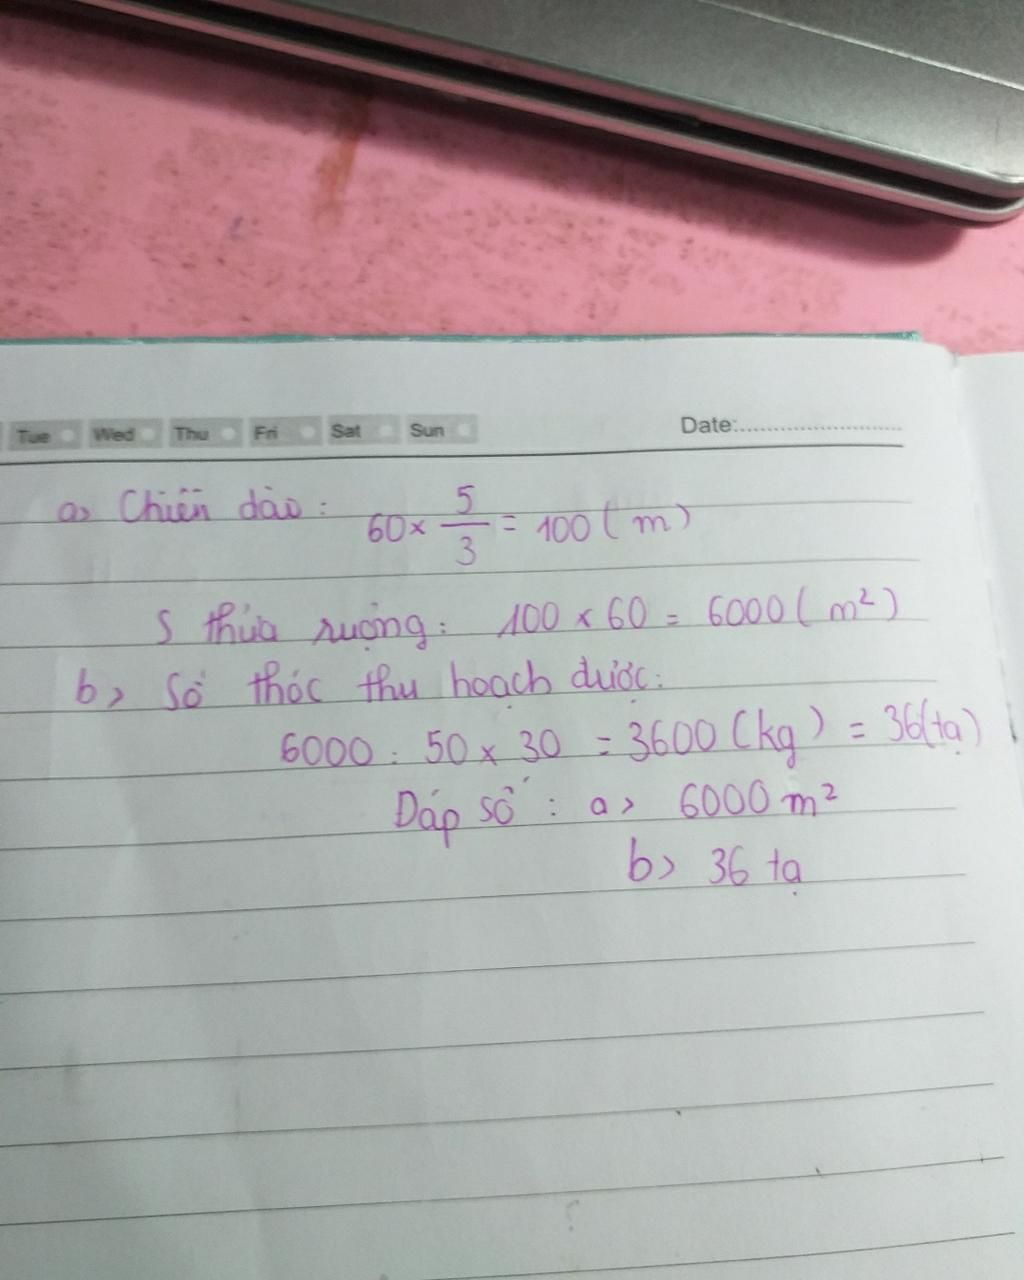 Tue Wed Thu Fri Sat Sun Date:............................
a> Chiền dài: 60 x 5/3 = 100 ( m )
S thửa ruộng: 100 x 60 = 6000 ( m² )
b> Số thóc thu hoạch được:
6000 : 50 x 30 = 3600 (kg) = 36(tạ)
Đáp số : a> 6000 m²
b> 36 tạ